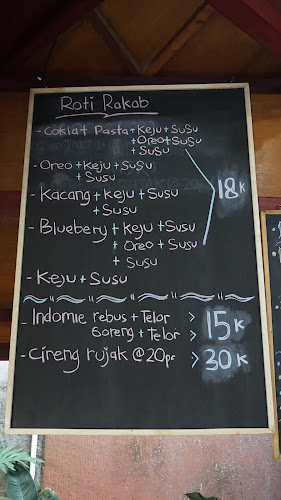 Roti Rakab
- Coklat Pasta + Keju + Susu
+ Oreo + Susu
+ Susu
- Oreo + Keju + Susu
+ Susu
- Kacang + Keju + Susu
+ Susu
- Bluebery + Keju + Susu
+ Oreo + Susu
+ Susu
18K
- Keju + Susu
- Indomie rebus + Telor > 15K
Goreng + Telor >
- Cireng rujak @20pc > 30K